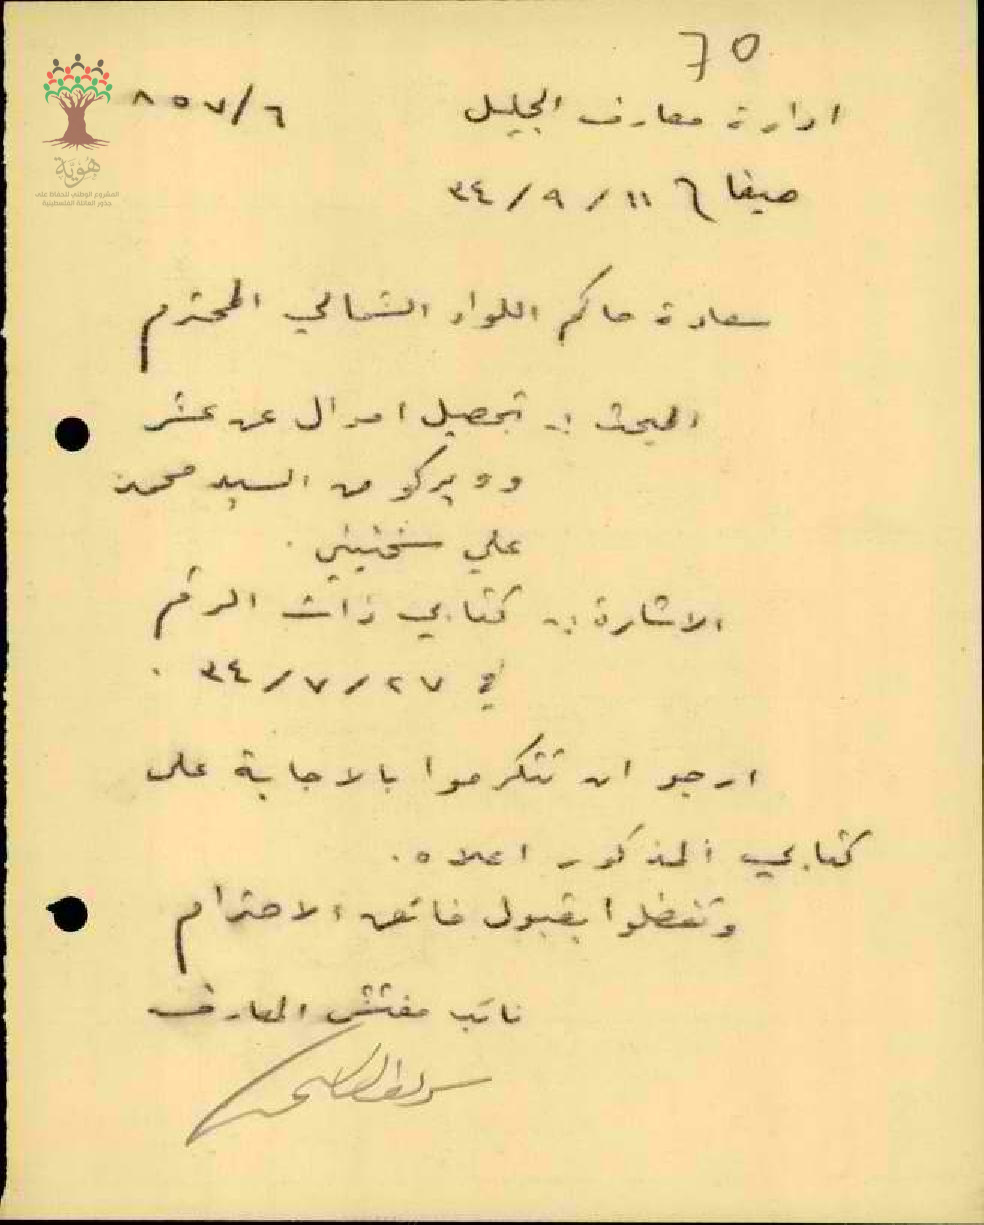 70
ادارة معارف الجليل ٦/٨٥٧
حيفا في ١١/٩/٣٤
سعادة حاكم اللواء الشمالي المحترم
المبحث :- تحصيل اموال عن عشر
وويركو من السيد محمد
علي
الاشارة :- كتابي ذات الرقم
في ٢٧/٧/٣٤ .
ارجو ان تتكرموا بالاجابة على
كتابي المذكور اعلاه .
وتفضلوا بقبول فائق الاحترام
نائب مفتش المعارف
هُوِيَّة
المشروع الوطني للحفاظ على
جذور العائلة الفلسطينية